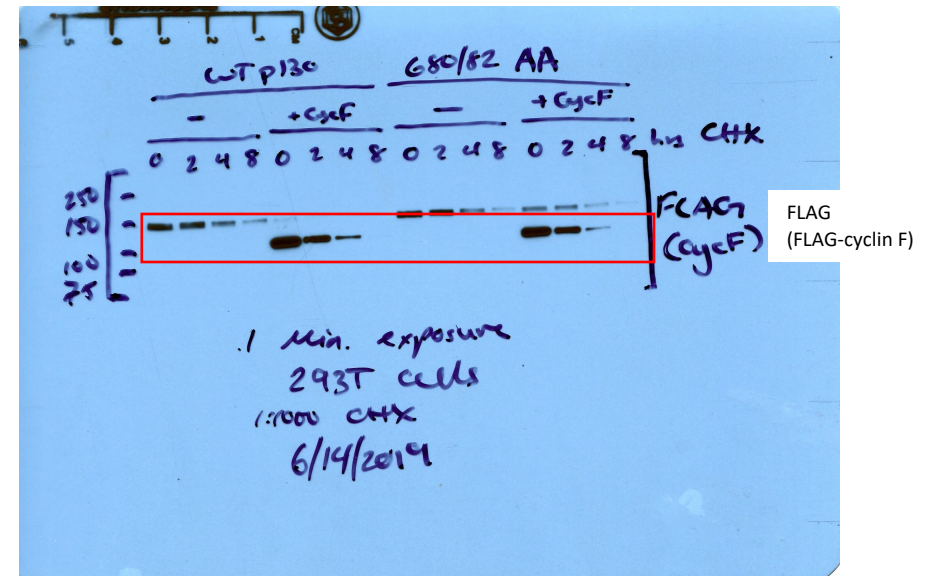 5 4 3 2 1
WT p130 680/82 AA
- + CycF - + CycF
0 2 4 8 0 2 4 8 0 2 4 8 0 2 4 8 hrs CHX
250
150
100
75
FLAG
(CycF)
FLAG
(FLAG-cyclin F)
1 Min. exposure
293T cells
1:1000 CHX
6/14/2019